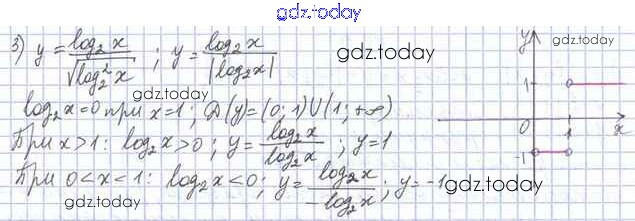 gdz.today
3) y = log₂x / √(log₂²x) ; y = log₂x / |log₂x|
gdz.today
log₂x=0 при x=1; D(y)=(0;1)∪(1;+∞)
При x>1: log₂x>0; y = log₂x / log₂x ; y=1
При 0<x<1: log₂x<0; y = log₂x / -log₂x ; y=-1
gdz.today
gdz.today
y
1
0
1
x
-1